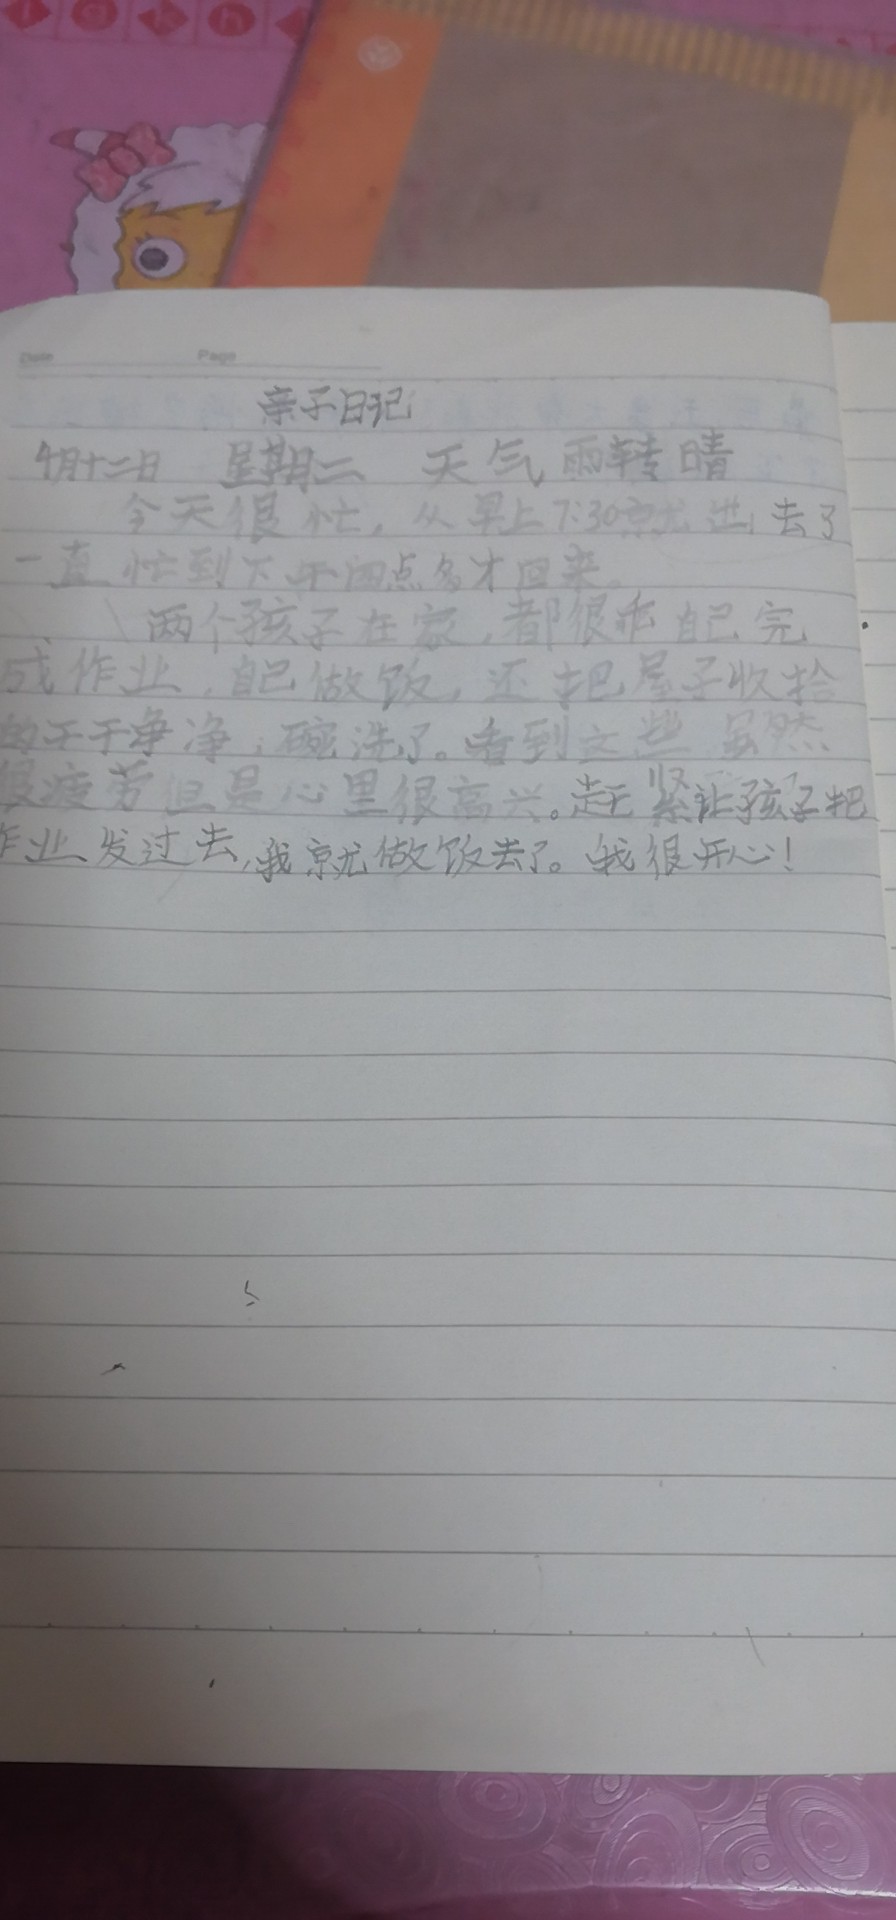 Date Page
亲子日记
4月十二日 星期二 天气 雨转晴
今天很忙，从早上7:30就出去了
一直忙到下午四点多才回来。
两个孩子在家，都很乖自己完
成作业，自己做饭，还把屋子收拾
的干干净净，碗洗了。看到这些 虽然
很疲劳但是心里很高兴。赶紧让孩子把
作业发过去，我就做饭去了。我很开心！